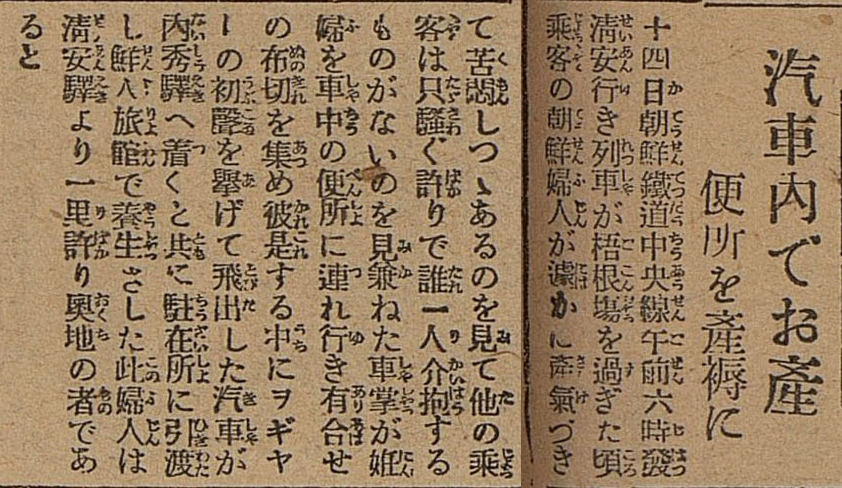 汽車內でお產
便所を產褥に
十四日朝鮮鐵道中央線午前六時發
淸安行き列車が梧根場を過ぎた頃
乘客の朝鮮婦人が遽かに產氣づき
て苦悶しつゝあるのを見て他の乘
客は只騷ぐ許りで誰一人介抱する
ものがないのを見兼ねた車掌が姙
婦を車中の便所に連れ行き有合せ
の布切を集め彼是する中にヲギヤ
ーの初聲を擧げて飛出した汽車が
內秀驛へ着くと共に駐在所に引渡
し鮮人旅館で養生さした此婦人は
淸安驛より一里許り奧地の者であ
ると